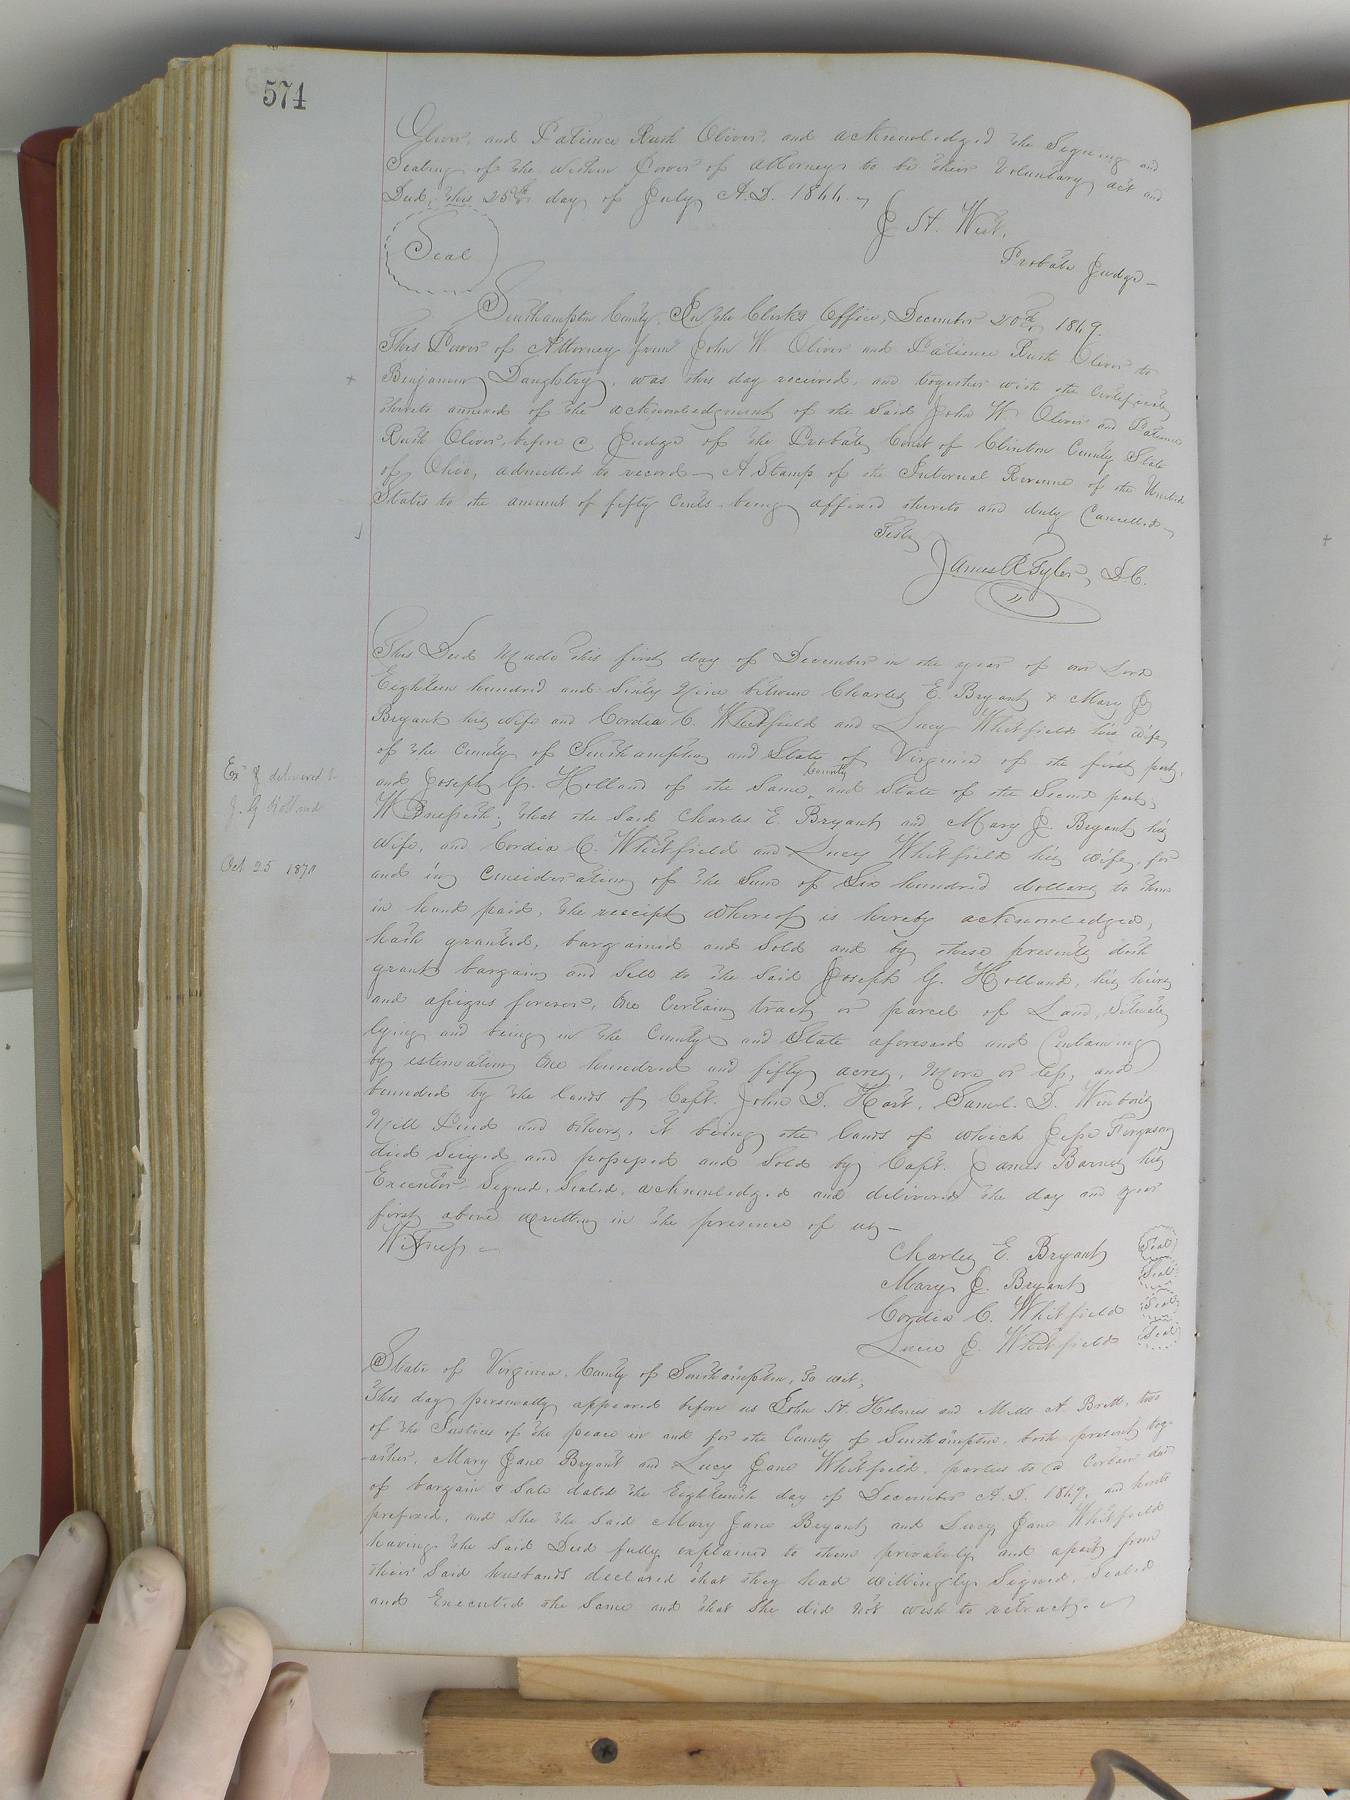 574
Oliver, and Patience Rush Oliver, and acknowledged the Signing and
Sealing of the within Power of attorney to be their Voluntary act and
Deed, this 25th day of July A.D. 1866.
J. H. West,
Seal
Probate Judge
Southampton County, In the Clerk's Office, December 20th 1869.
This Power of Attorney from John W. Oliver and Patience Rush Oliver to
Benjamin Daughtry, was this day received, and together with the Certificate
thereto annexed of the acknowledgment of the said John W. Oliver and Patience
Rush Oliver, before a Judge of the Probate Court of Clinton County State
of Ohio, admitted to record A Stamp of the Internal Revenue of the United
States to the amount of fifty Cents being affixed thereto and duly Cancelled
Teste
James R Tyler, D.C.
This Deed Made this first day of December in the year of our Lord
Eighteen hundred and Sixty Nine between Charles E. Bryant & Mary J
Bryant his wife and Cordia C. Whitfield and Lucy Whitfield his wife
of the County of Southampton and State of Virginia of the first part,
and Joseph G. Holland of the Same County and State of the Second part,
Witnesseth; that the said Charles E. Bryant and Mary J. Bryant his
wife, and Cordia C. Whitfield and Lucy Whitfield his wife, for
and in Consideration of the Sum of Six hundred dollars to them
in hand paid, the receipt whereof is hereby acknowledged,
hath granted, bargained and Sold and by these presents doth
grant bargain and Sell to the said Joseph G. Holland, his heirs
and assigns forever, One Certain tract or parcel of Land, Situate
lying and being in the County and State aforesaid and Containing
by estimation One hundred and fifty acres, More or less, and
bounded by the lands of Capt. John D. Hart, Saml. D. Winborn's
Mill Pond and others, it being the lands of which Jesse Ferguson
died Seized and possessed and Sold by Capt. James Barnes his
Executor. Signed, Sealed, acknowledged and delivered the day and year
first above written in the presence of us
Witness
Charles E. Bryant Seal
Mary J. Bryant Seal
Cordia C. Whitfield Seal
Lucie J. Whitfield Seal
Ex d & delivered to
J. G Holland
Oct 25 1870
State of Virginia, County of Southampton, To wit;
This day personally appeared before us John H. Holmes and Mills A. Britt, two
of the Justices of the peace in and for the County of Southampton, both present tog-
-ether, Mary Jane Bryant and Lucy Jane Whitfield, parties to a Certain deed
of bargain & Sale dated the Eighteenth day of December A.D. 1869, and hereto
prefixed, and She the said Mary Jane Bryant and Lucy Jane Whitfield
having the said Deed fully explained to them privately and apart from
their said husbands declared that they had willingly Signed, Sealed
and Executed the Same and that She did not wish to retract.